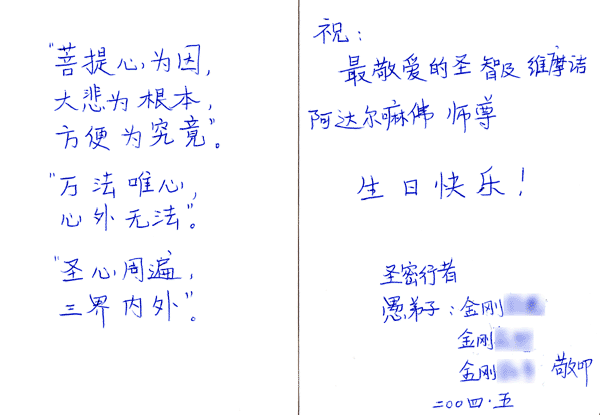 "菩提心为因，
大悲为根本，
方便为究竟"。
"万法唯心，
心外无法"。
"圣心周遍，
三界内外"。
祝：
最敬爱的圣智及维摩诘
阿达尔嘛佛师尊
生日快乐！
圣密行者
愚弟子：金刚
金刚
金刚 敬叩
二〇〇四·五